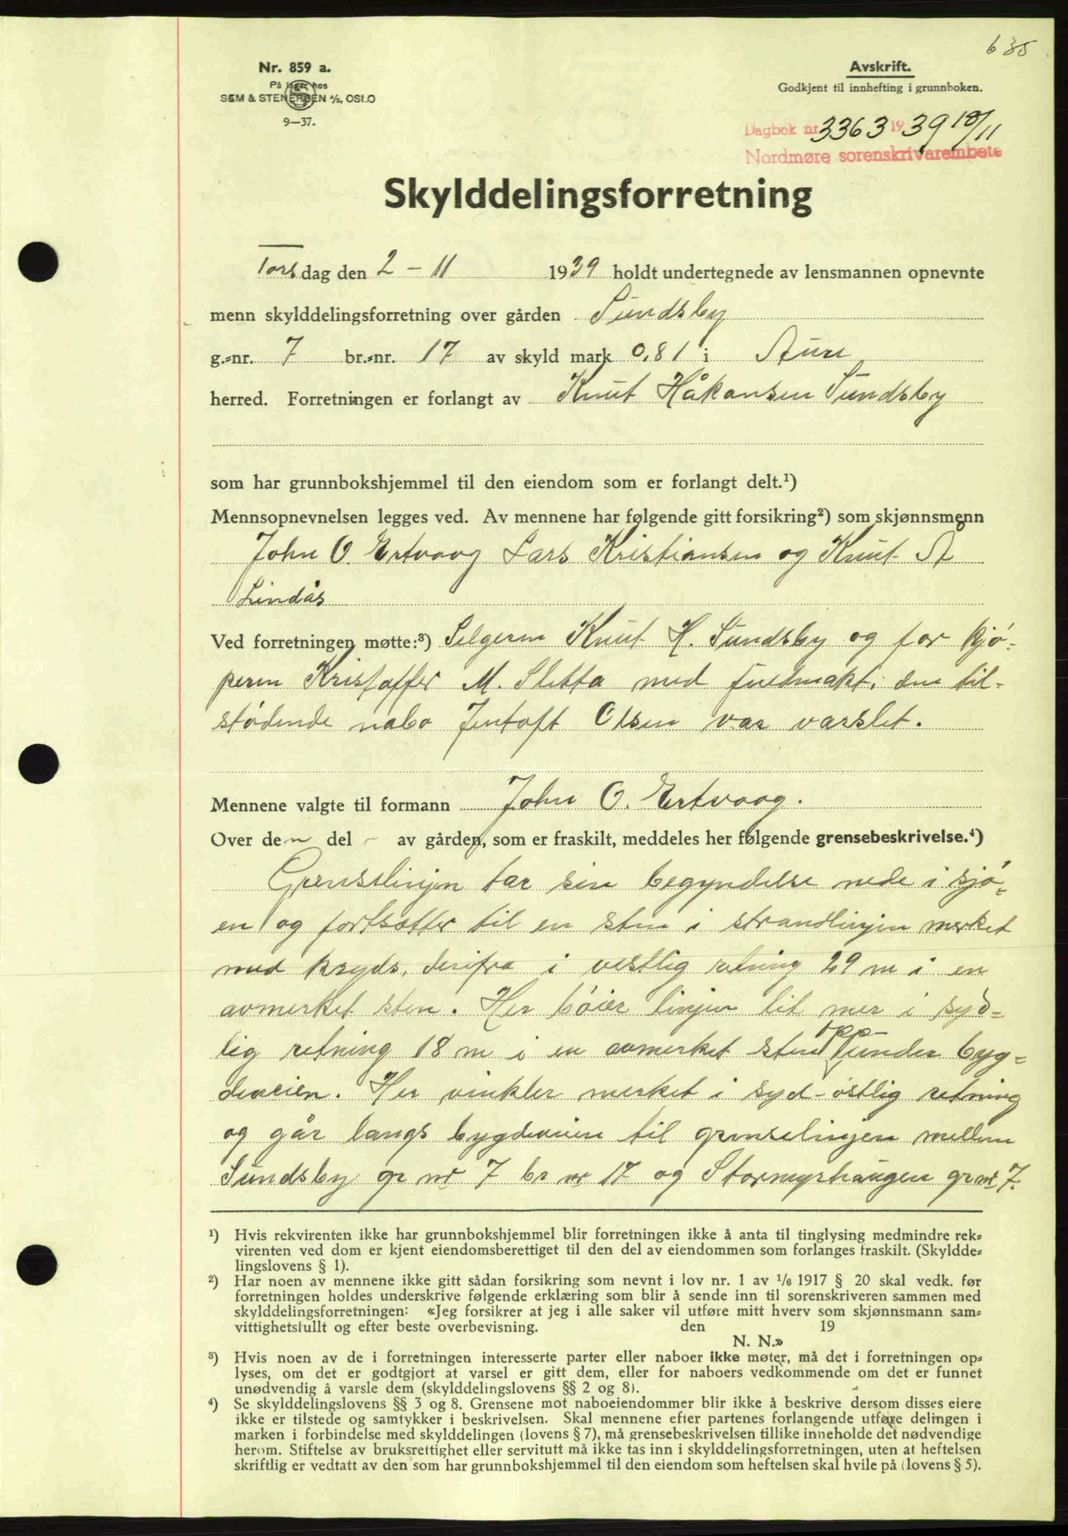 635
Nr. 859 a.
På lager hos
SEM & STENERSEN A/S, OSLO
9-37.
Avskrift.
Godkjent til innhefting i grunnboken.
Dagbok nr. 3363 1939 10/11
Nordmøre sorenskrivarembete
Skylddelingsforretning
Torsdag den 2-11 1939 holdt undertegnede av lensmannen opnevnte
menn skylddelingsforretning over gården Sundsby
g.-nr. 7 br.-nr. 17 av skyld mark 0,81 i Aure
herred. Forretningen er forlangt av Knut Håkansen Sundsby
som har grunnbokshjemmel til den eiendom som er forlangt delt.¹)
Mennsopnevnelsen legges ved. Av mennene har følgende gitt forsikring²) som skjønnsmenn
John O. Ertvaag Lars Kristiansen og Knut A
Lindås
Ved forretningen møtte:³) Selgeren Knut H. Sundsby og for kjø-
peren Kristoffer M. Sletta med fuldmakt, den til-
stødende nabo Jentoft Olsen var varslet.
Mennene valgte til formann John O. Ertvaag.
Over den del - av gården, som er fraskilt, meddeles her følgende grensebeskrivelse.⁴)
Grenselinjen tar sin begyndelse nede i sjø-
en og fortsetter til en sten i strandlinjen merket
med kryds, derifra i vestlig retning 29 m i en
avmerket sten. Her bøier linjen litt mer i syd-
lig retning 18 m i en avmerket sten opp-
under byg-
deveien. Her vinkler merket i syd-østlig retning
og går langs bygdeveien til grenselinjen mellem
Sundsby gr nr 7 br nr 17 og Stormyrhaugen gr nr 7.
¹) Hvis rekvirenten ikke har grunnbokshjemmel blir forretningen ikke å anta til tinglysing medmindre rek-
virenten ved dom er kjent eiendomsberettiget til den del av eiendommen som forlanges fraskilt. (Skyldde-
lingslovens § 1).
²) Har noen av mennene ikke gitt sådan forsikring som nevnt i lov nr. 1 av 1/6 1917 § 20 skal vedk. før
forretningen holdes underskrive følgende erklæring som blir å sende inn til sorenskriveren sammen med
skylddelingsforretningen: «Jeg forsikrer at jeg i alle saker vil utføre mitt hverv som skjønnsmann sam-
vittighetsfullt og efter beste overbevisning. den 19
N. N.»
³) Hvis noen av de i forretningen interesserte parter eller naboer ikke møter, må det i forretningen op-
lyses, om det er godtgjort at varsel er gitt dem, eller for naboers vedkommende om det er funnet
unødvendig å varsle dem (skylddelingslovens §§ 2 og 8).
⁴) Se skylddelingslovens §§ 3 og 8. Grensene mot naboeiendommer blir ikke å beskrive dersom disses eiere
ikke er tilstede og samtykker i beskrivelsen. Skal mennene efter partenes forlangende utføre delingen i
marken i forbindelse med skylddelingen (lovens § 7), må grensebeskrivelsen tillike inneholde det nødvendige
herom. Stiftelse av bruksrettighet eller servitutt må ikke tas inn i skylddelingsforretningen, uten at heftelsen
skriftlig er vedtatt av den som har grunnbokshjemmel til den eiendom som heftelsen skal hvile på (lovens § 5).